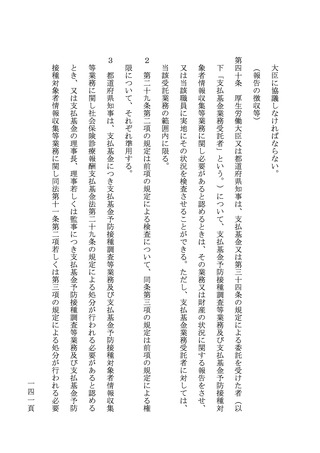 大臣に協議しなければならない。
（報告の徴収等）
第四十条　厚生労働大臣又は都道府県知事は、支払基金又は第三十四条の規定による委託を受けた者（以
下「支払基金業務受託者」という。）について、支払基金予防接種調査等業務及び支払基金予防接種対
象者情報収集等業務に関し必要があると認めるときは、その業務又は財産の状況に関する報告をさせ、
又は当該職員に実地にその状況を検査させることができる。ただし、支払基金業務受託者に対しては、
当該受託業務の範囲内に限る。
２　第二十九条第二項の規定は前項の規定による検査について、同条第三項の規定は前項の規定による権
限について、それぞれ準用する。
３　都道府県知事は、支払基金につき支払基金予防接種調査等業務及び支払基金予防接種対象者情報収集
等業務に関し社会保険診療報酬支払基金法第二十九条の規定による処分が行われる必要があると認める
とき、又は支払基金の理事長、理事若しくは監事につき支払基金予防接種調査等業務及び支払基金予防
接種対象者情報収集等業務に関し同法第十一条第二項若しくは第三項の規定による処分が行われる必要
一四一頁